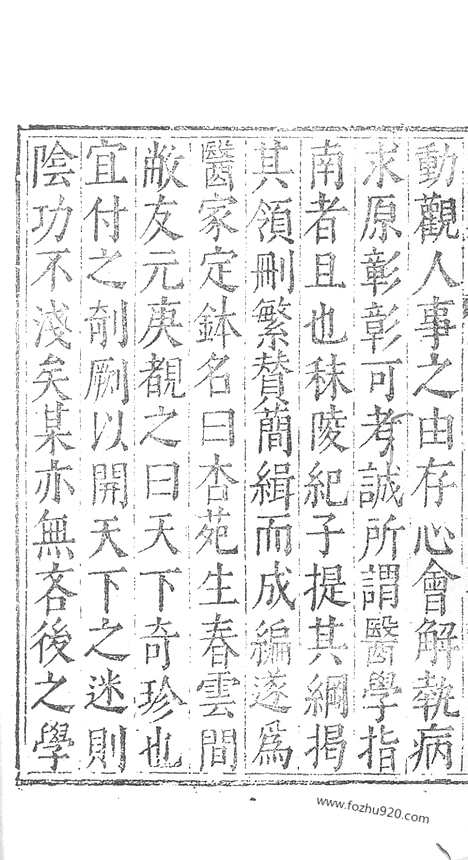 動觀人事之由存心會解執病
求原彰彰可考誠所謂醫學指
南者且也秣陵紀子提其綱揭
其領刪繁賛簡緝而成編遂爲
醫家定鉢名曰杏苑生春雲間
敝友元庚覩之曰天下奇珍也
宜付之剞劂以開天下之迷則
陰功不淺矣某亦無吝後之學
www.fozhu920.com